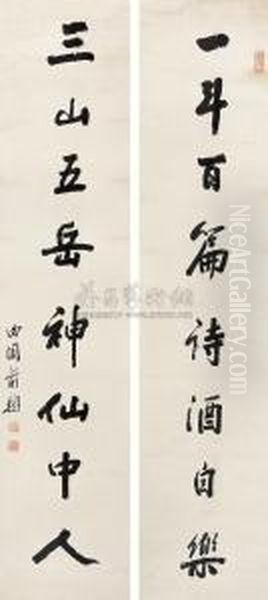 一斗百篇诗酒自樂
三山五岳神仙中人
NiceArtGallery.com